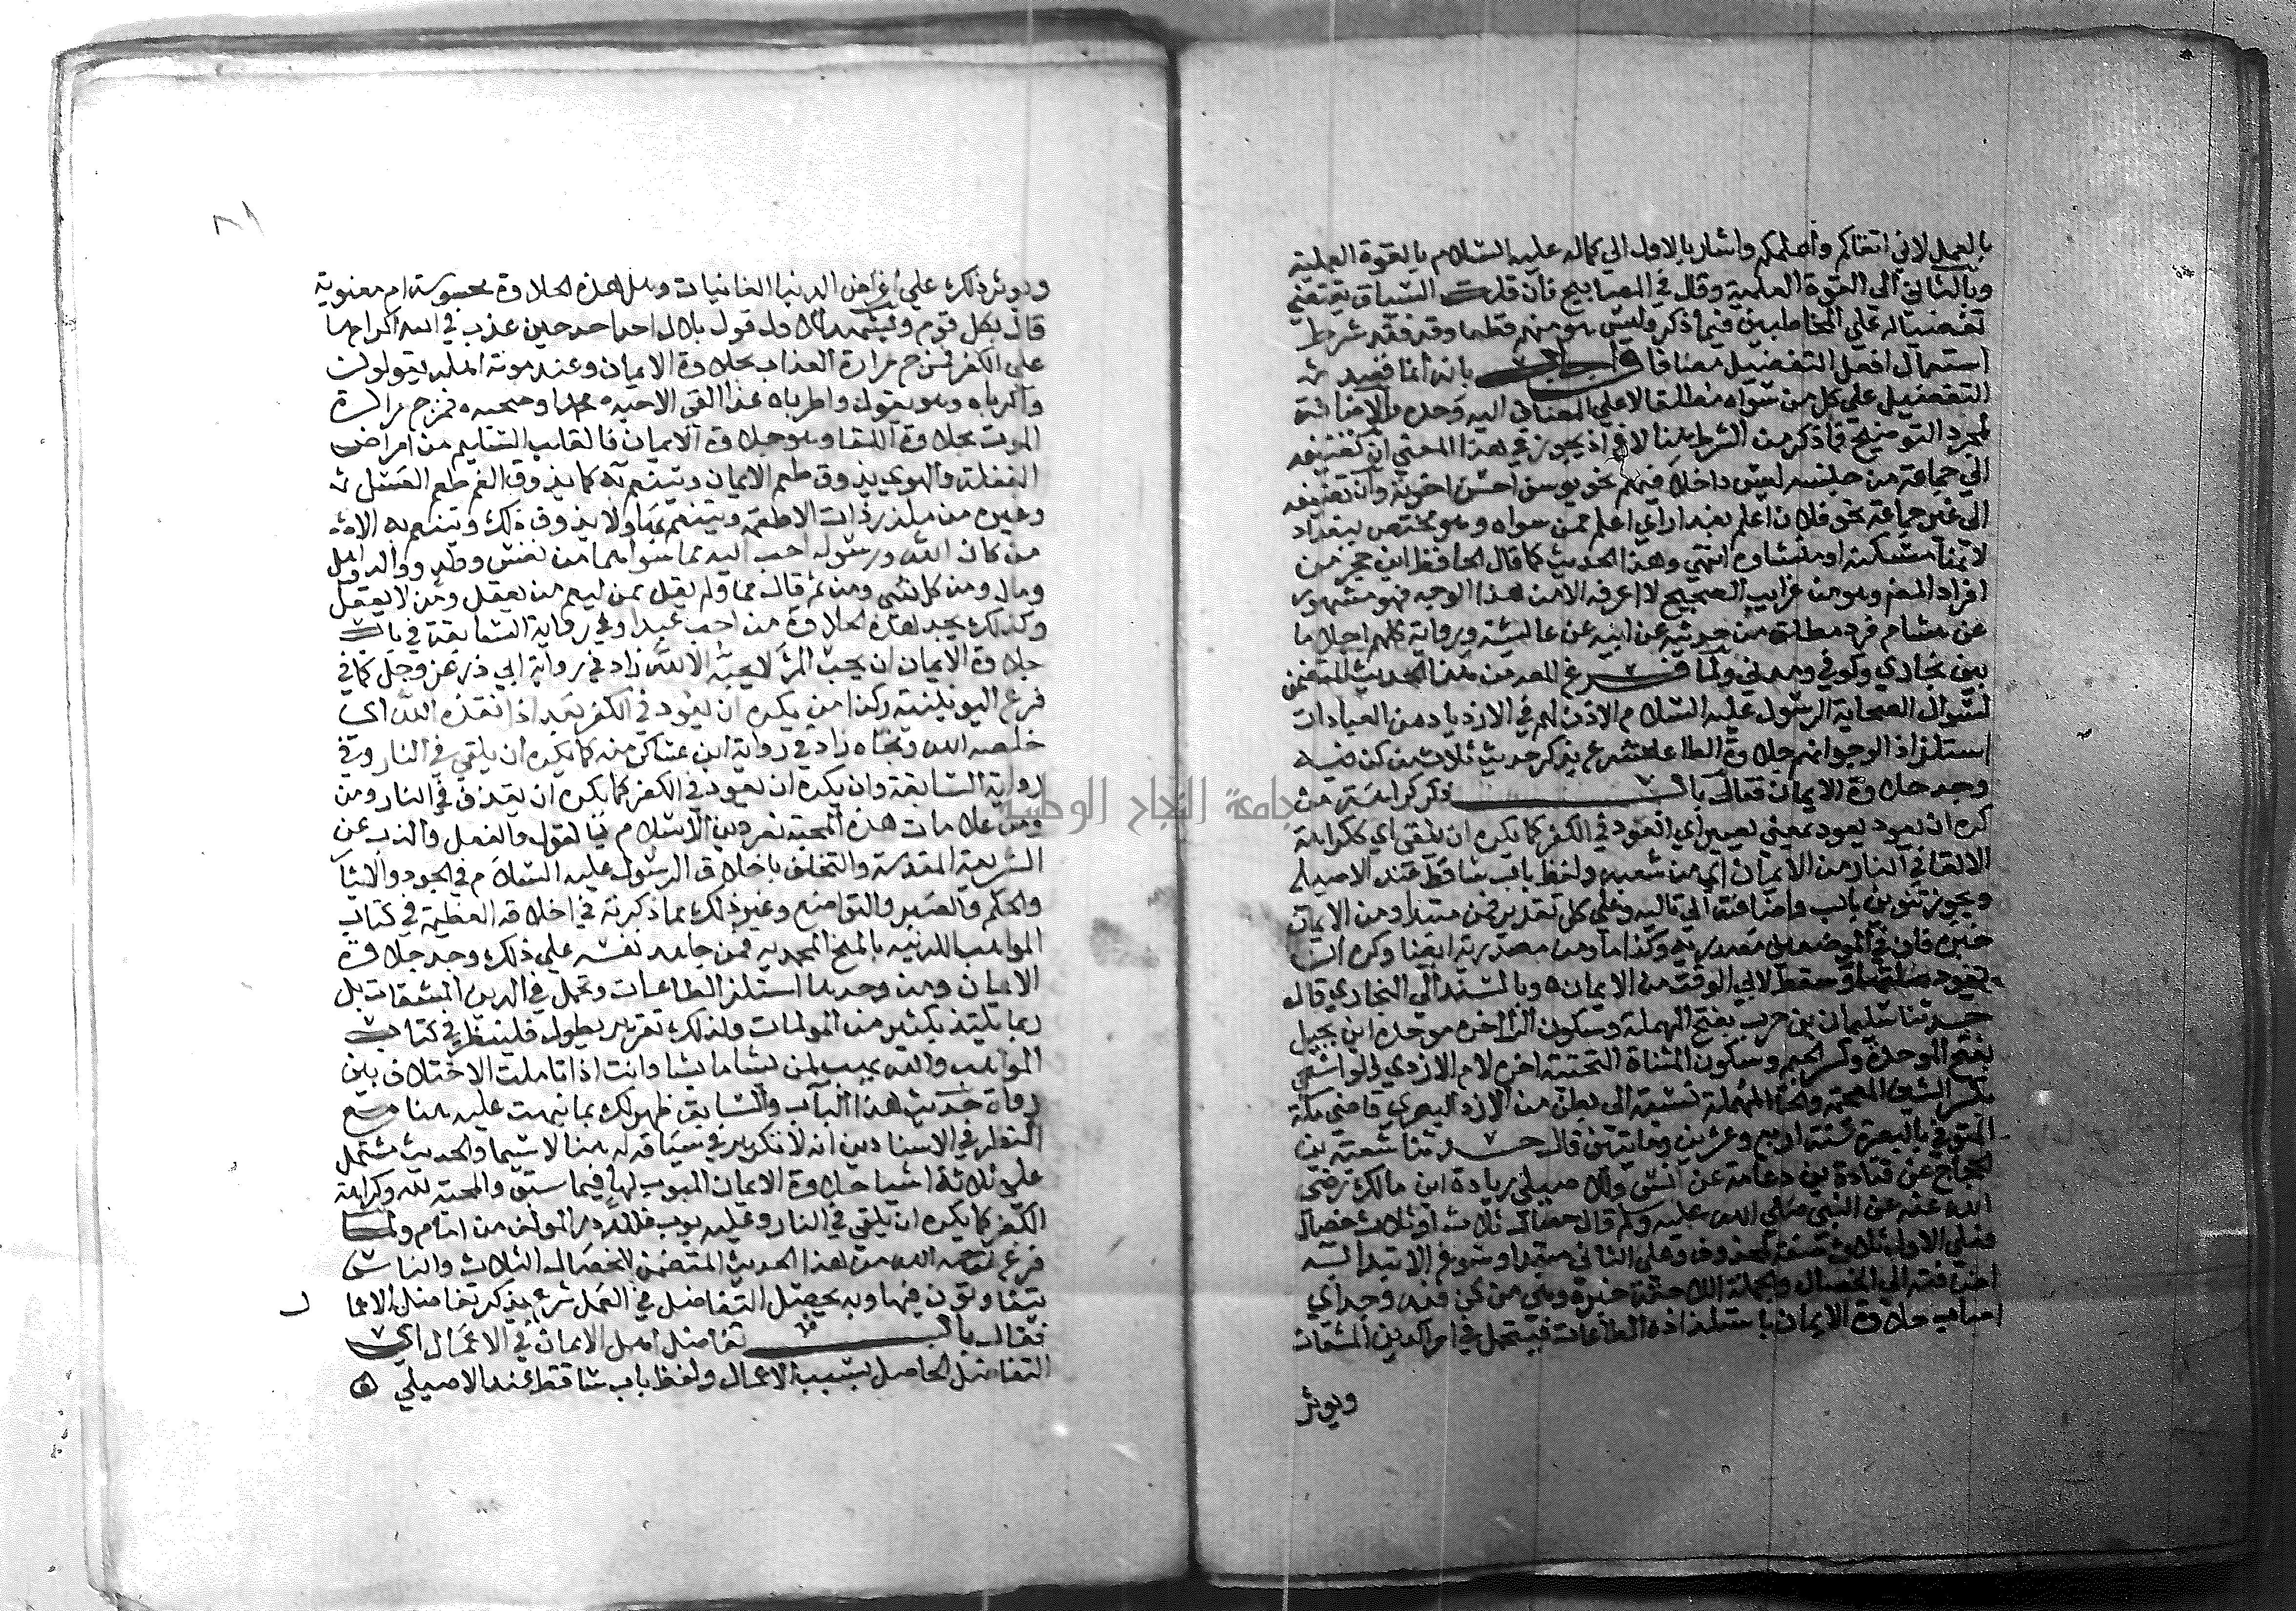 بالعمل لاني اتقاكم وأعلمكم واشار بالاول الي كماله عليه السلام بالقوة العملية
وبالثاني الي القوة العلمية وقال في المصابيح فان قلت السياق يقتضي
تفضيله علي المخاطبين فيما ذكر وليس هو منهم قطعا وقد فقد شرط
استعمال افعل التفضيل مضافا فاجاب بانه انما قصد
التفضيل علي كل من سواه مطلقا لا علي المضاف اليه وحده والاضافة
لمجرد التوضيح فما ذكر من الشرط هنا لاغ اذ يجوز في هذا المعني ان تضيفه
الي جماعة من جنسه ليس داخلا فيهم نحو يوسف احسن اخوته وان تضيفه
الي غير جماعة نحو فلان اعلم بغداد اي اعلم ممن سواه وهو مختص ببغداد
لانها مسكنه او منشاوه انتهي وهذا الحديث كما قال الحافظ ابن حجر من
افراد المصنف وهو من غرايب الصحيح لا اعرفه الا من هذا الوجه فهو مشهور
عن هشام فرد مطلق من حديثه عن ابيه عن عايشة ورواته كلهم اجلا ما
بين بخاري وكوفي ومدني ولما فرغ المص من هذا الحديث المتضمن
لسوال الصحابة الرسول عليه السلام الاذن لهم في الازدياد من العبادات
استلذاذا لوجدانهم حلاوة الطاعات شرع يذكر حديث ثلاث من كن فيه
وجد حلاوة الايمان فقال باب بالتنوين ذكر كراهة من
كره ان يعود يعود بمعني يصير اي العود في الكفر كما يكره ان يلقي اي ككراهة
الالقا في النار من الايمان اي من شعبه ولفظ باب ساقط عند الاصيلي
ويجوز تنوين باب واضافته الي تاليه وعلي كل تقدير فمن مبتدا ومن الايمان
خبره فان في الموضعين مصدرية وكذا ما ومن مصدرية ايضا وكره ان
يعود صلتها وسقط لابي الوقت من الايمان ه وبالسند الي البخاري قال
حدثنا سليمان بن حرب بفتح المهملة وسكون الرا اخره موحدة ابن بجيل
بفتح الموحدة وكسر الجيم وسكون المثناة التحتية اخره لام الازدي الواشحي
بكسر الشين المعجمة والحا المهملة نسبة الي بطن من الازد البصري قاضي مكة
المتوفي بالبصرة سنة اربع وعشرين ومايتين قال حدثنا شعبة بن
الحجاج عن قتادة بن دعامة عن انس وللاصيلي زيادة ابن مالك رضي
الله عنه عن النبي صلي الله عليه وسلم قال خصال ثلاث او ثلاث خصال
فعلي الاول ثلاث صفة لمحذوف وعلي الثاني مبتدا وسوغ الابتدا به
اضافته الي الخصال والجملة اللاحقة خبره وهي من كن فيه وجد اي
اصاب حلاوة الايمان باستلذاذه الطاعات فيتحمل في امر الدين المشقات
ويوثر
ويوثر ذلك علي أغراض الدنيا الفانيات وهل هذه الحلاوة محسوسة ام معنوية
قال بكل قوم ويشهد للاول قول بلال احد احد حين عذب في الله اكراها
علي الكفر فمزج مرارة العذاب بحلاوة الايمان وعند موته اهله يقولون
واكرباه وهو يقول واطرباه غدا القي الاحبه محمدا وصحبه فمزج مرارة
الموت بحلاوة اللقا وهو حلاوة الايمان فالقلب السليم من امراض
الغفلة والهوي يذوق طعم الايمان ويتنعم به كما يذوق الفم طعم العسل
وغيره من ملذوذات الاطعمة ويتنعم بها ولا يذوق ذلك ويتنعم به الا
من كان الله ورسوله احب اليه مما سواهما من نفس وولد ووالد واهل
ومال ومن كل شي ومن ثم قال مما ولم يقل ممن ليعم من يعقل ومن لا يعقل
وكذلك يجد هذه الحلاوة من احب عبدا وفي رواية السابقة في باب
حلاوة الايمان ان يحب المرء لا يحبه الا لله زاد في رواية ابي ذر عز وجل كما في
فرع اليونينية وكذا من يكره ان يعود في الكفر بعد اذ انقذه الله اي
خلصه الله ونجاه زاد في رواية ابن عساكر منه كما يكره ان يلقي في النار وفي
رواية السابقة وان يكره ان يعود في الكفر كما يكره ان يقذف في النار ومن
ومن علامات هذه المحبة نصر دين الاسلام بالقول والفعل والذب عن
الشريعة المقدسة والتخلق باخلاق الرسول عليه السلام في الجود والايثار
والحلم والصبر والتواضع وغير ذلك مما ذكرته في اخلاقه العظيمة في كتاب
المواهب اللدنية بالمنح المحمدية فمن جاهد نفسه علي ذلك وجد حلاوة
الايمان ومن وجدها استلذ الطاعات وتحمل في الدين المشقات بل
ربما يلتذ بكثير من المولمات ولذلك تقرير يطول فلينظر في كتاب
المواهب والله يهب لمن يشا ما يشا وانت اذا تاملت الاختلاف بين
رواة حديث هذا الباب والسابق ظهر لك بما نبهت عليه هنا مع
النظر في الاسنادين ان لا تكرير في سياقه له هنا لا سيما والحديث مشتمل
علي ثلاثة اشيا حلاوة الايمان المبوب لها فيما سبق والمحبة لله وكراهة
الكفر كما يكره ان يلقي في النار وعليه بوب فلله در المولف من امام ولما
فرغ المص من هذا الحديث المتضمن لخصال الثلاث والناس
يتفاوتون فيها وبه يحصل التفاضل في العمل شرع يذكر تفاضل الاعما ل
فقال باب تفاضل اهل الايمان في الاعمال اي
التفاضل الحاصل بسبب الاعمال ولفظ باب ساقط عند الاصيلي
جامعة النجاح الوطنية